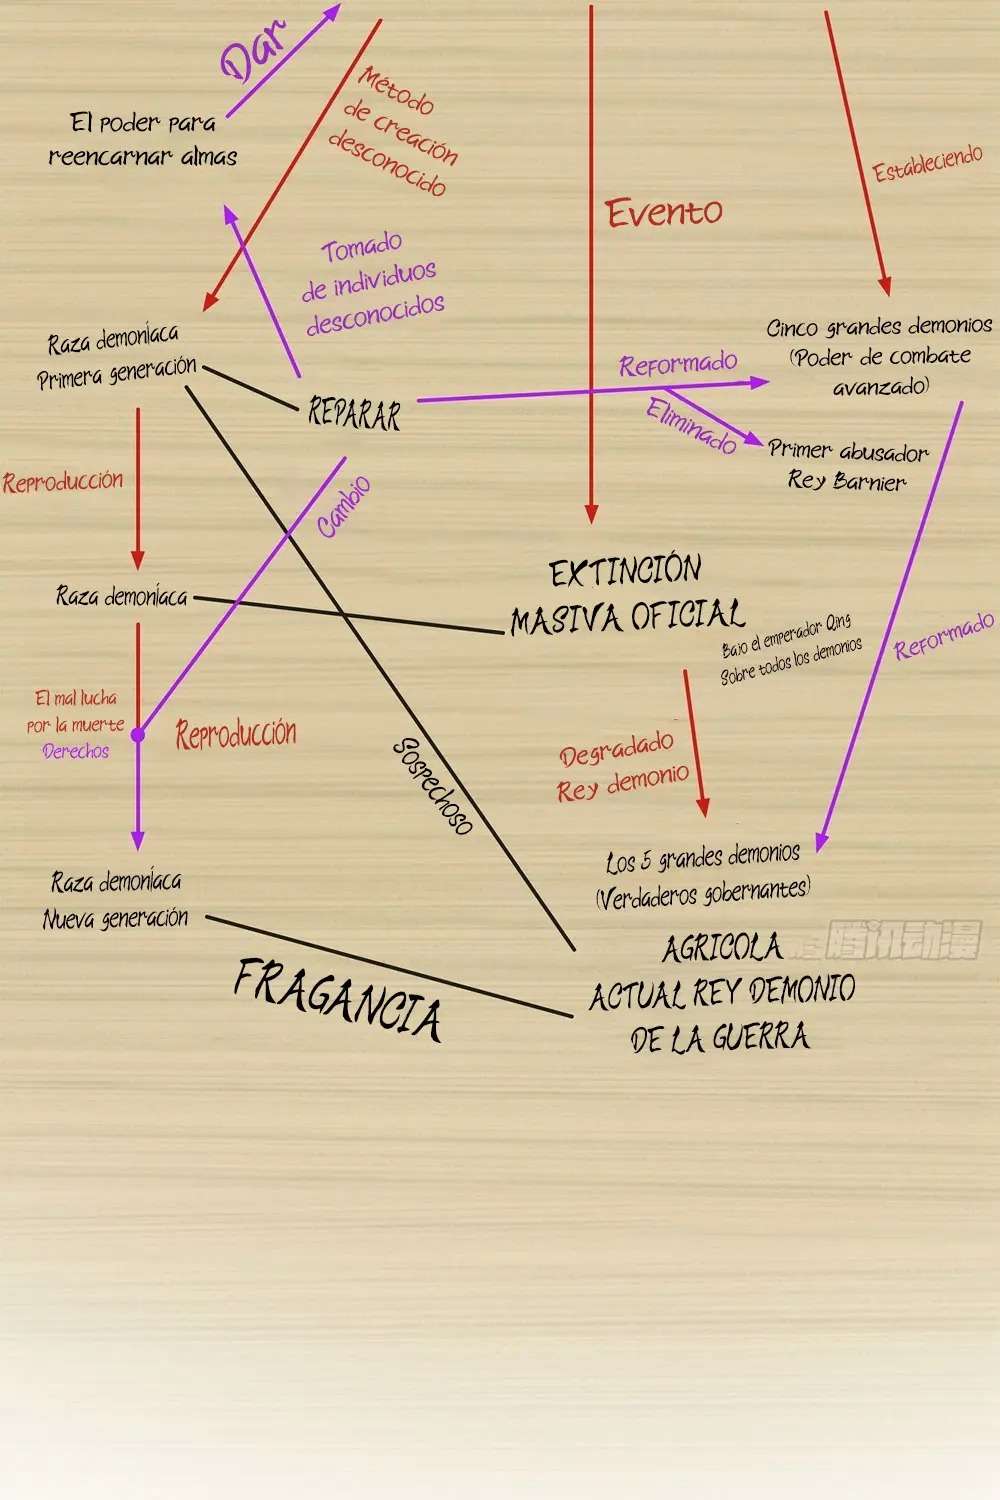 Dar
El poder para
reencarnar almas
Método
de creación
desconocido
Estableciendo
Evento
Tomado
de individuos
desconocidos
Raza demoníaca
Primera generación
REPARAR
Reformado
Eliminado
Cinco grandes demonios
(Poder de combate
avanzado)
Primer abusador
Rey Barnier
Reproducción
Cambio
Raza demoníaca
EXTINCIÓN
MASIVA OFICIAL
Bajo el emperador Qing
Sobre todos los demonios
Reformado
El mal lucha
por la muerte
Derechos
Reproducción
Sospechoso
Degradado
Rey demonio
Los 5 grandes demonios
(Verdaderos gobernantes)
Raza demoníaca
Nueva generación
FRAGANCIA
AGRICOLA
ACTUAL REY DEMONIO
DE LA GUERRA
腾讯动漫